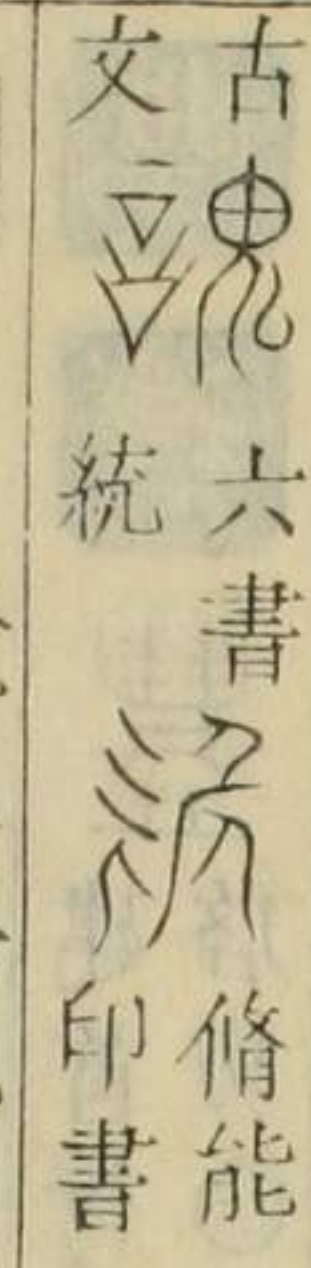 古文
六書統
脩能印書